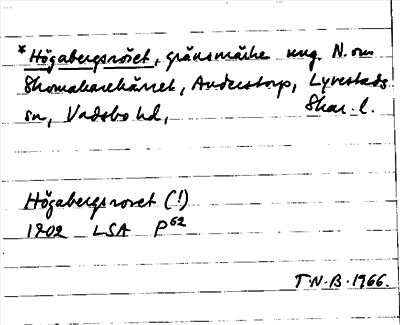 *Högabergsröset, gränsmärke ung. N. om
Skomakarekärret, Anderstorp, Lyrestads
sn, Vadsbo hd, Skar. l.
Högabergsroset (!)
1802 LSA P62
T.N.B. 1966.